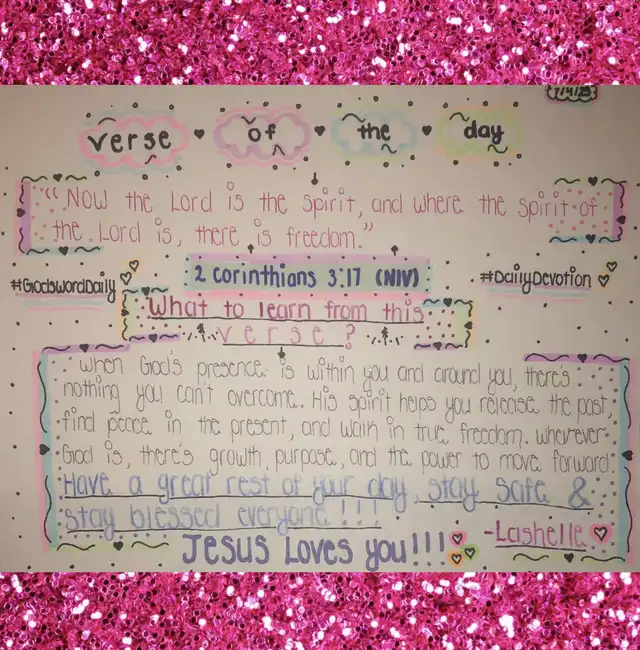 7/4/25
verse of the day
"Now the Lord is the Spirit, and where the spirit of
the Lord is, there is freedom."
2 corinthians 3:17 (NIV)
#GodswordDaily
#DailyDevotion
What to learn from this
verse?
When God's presence is within you and around you, there's
nothing you can't overcome. His spirit helps you release the past,
find peace in the present, and walk in true freedom. wherever
God is, there's growth, purpose, and the power to move forward.
Have a great rest of your day, stay safe &
stay blessed everyone!!!
-Lashelle
JESUS Loves you!!!